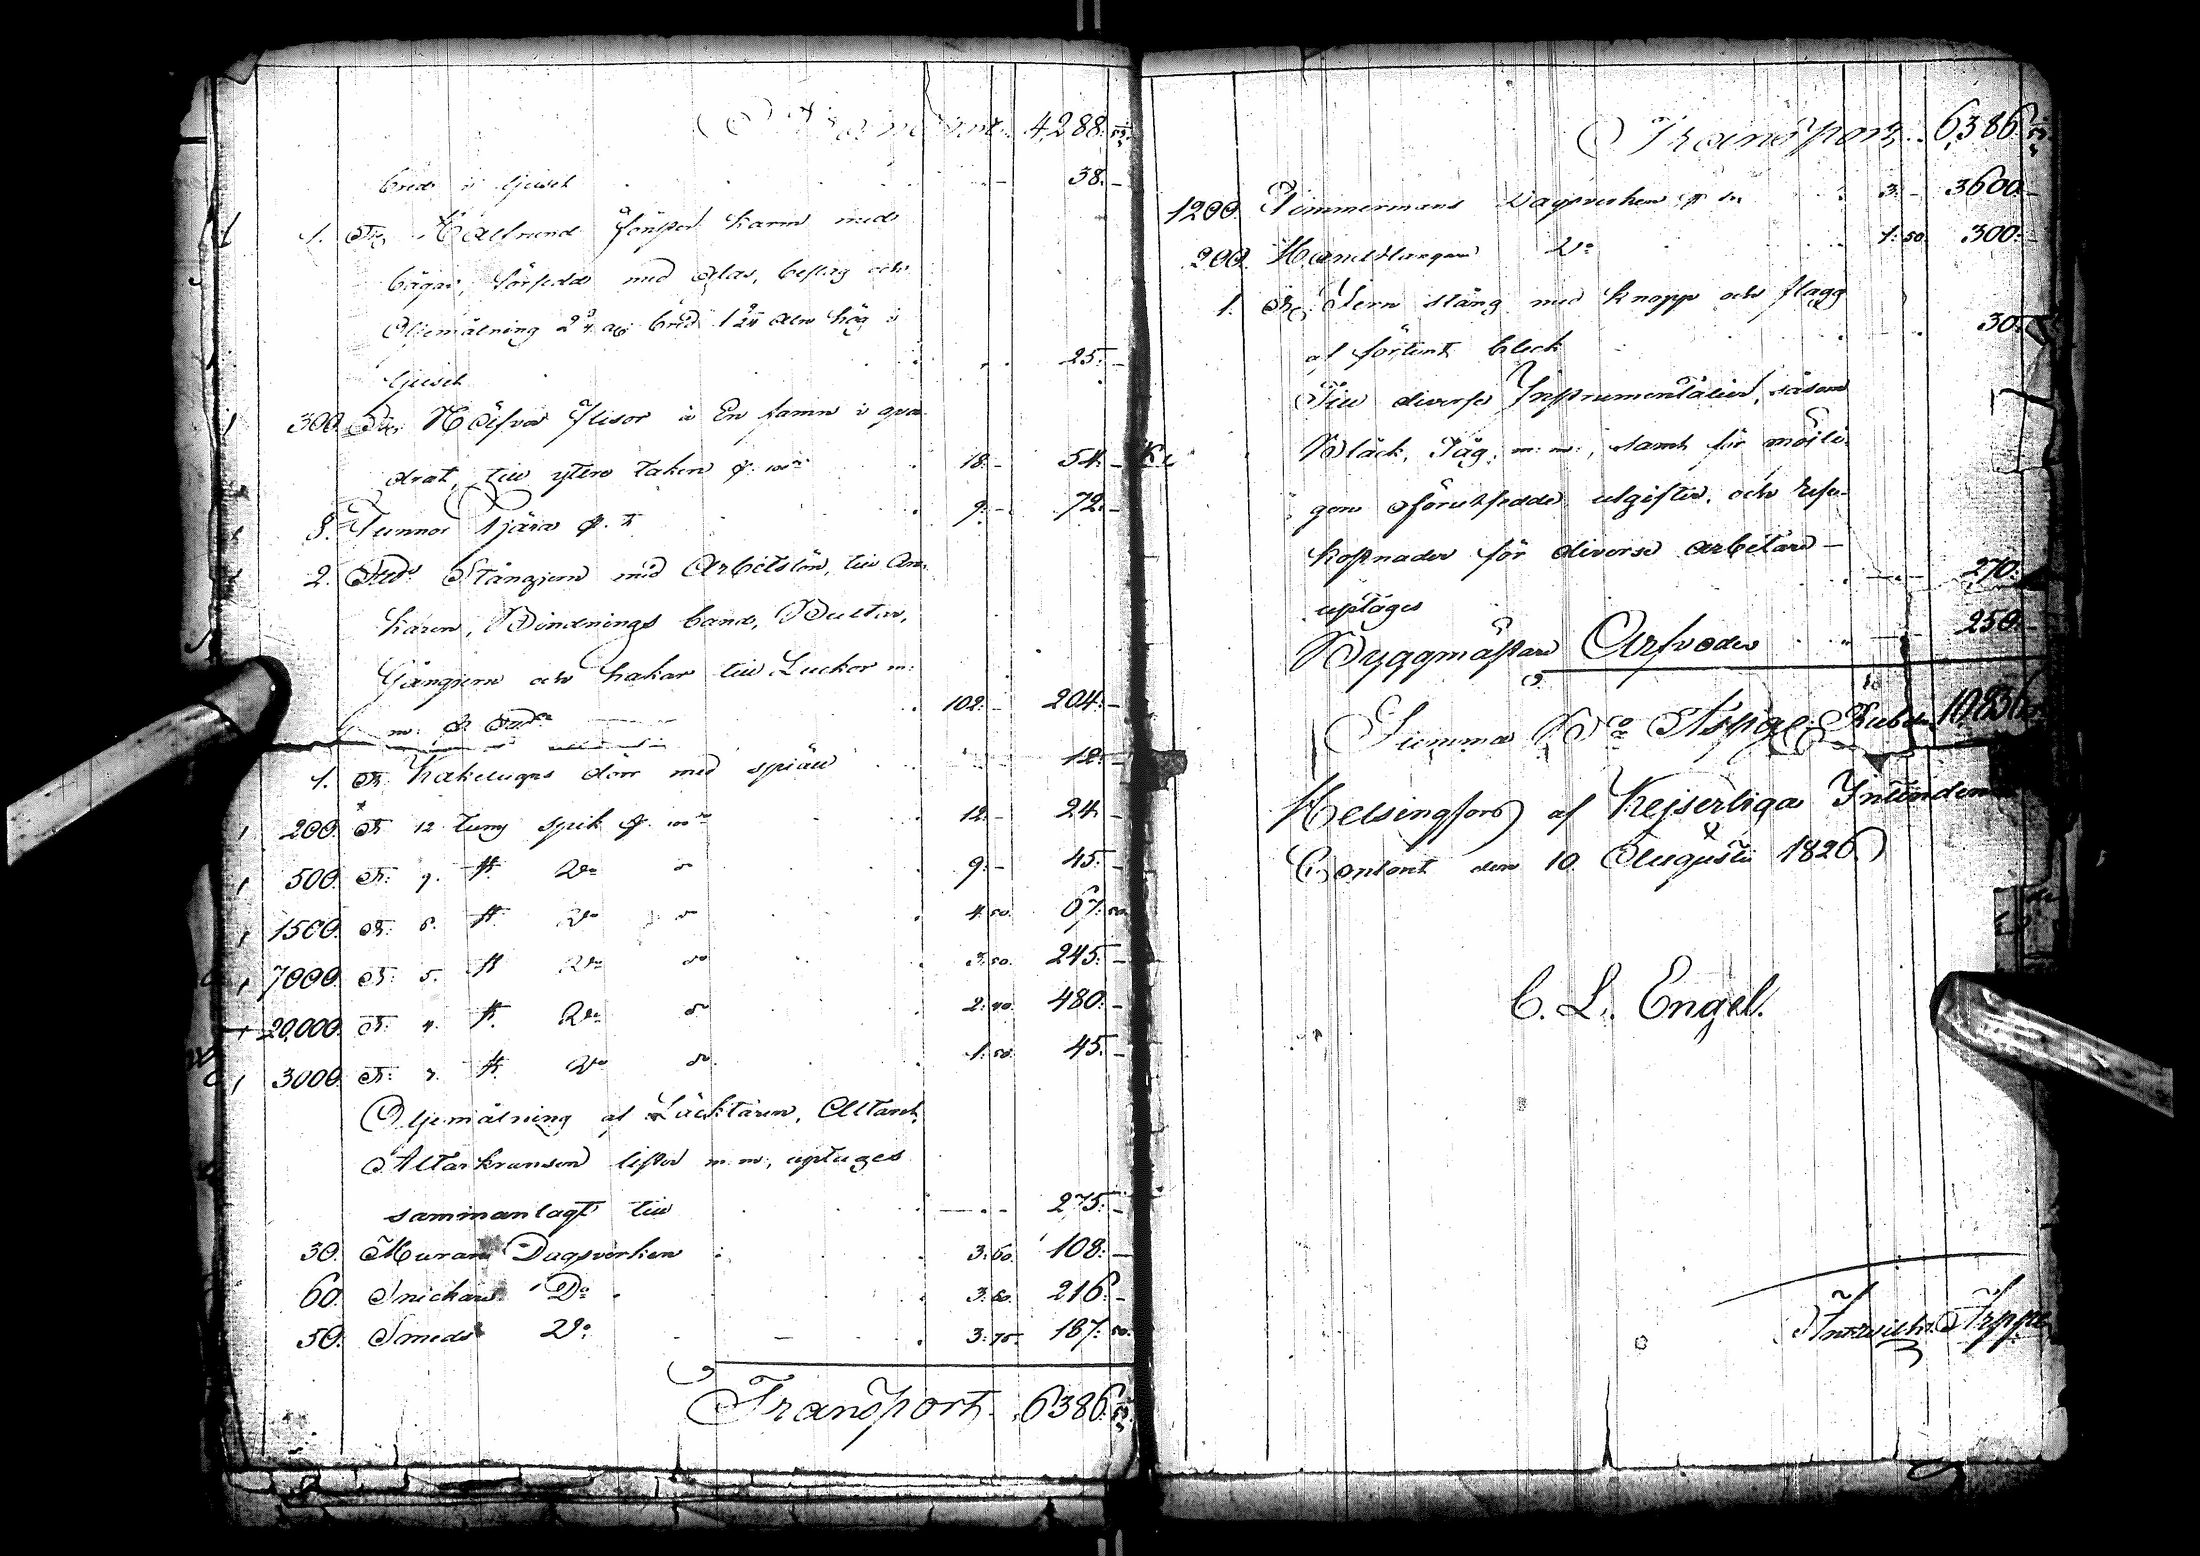 Transport 4288.
bred i ljuset 38.–
1. St. Halfrund Fönster karm med
bågar, försedd med Glas, beslag och
Oljemålning bred aln hög i
ljuset 25.–
300. St. Kölfvor Flisor à En famn i qva-
drat, till yttre taken 18.– 54.–
8. Tunnor Tjära 9.– 72.–
2. Stångjern med Arbetslön, till An-
karen, Bindnings band, Bultar,
Gångjern och hakar till Luckor m.
m. 102.– 204.–
1. St. Kakelugns dörr med spjäll 12.–
200. St. 12 tums spik 12.– 24.–
500. St. 9. Do 9.– 45.–
1500. St. 6. Do 4.50. 67.50.
7000. St. 5. Do 3.50. 245.–
20,000. St. 4. Do 2.40. 480.–
3000. St. 3. Do 1.50. 45.–
Oljemålning af Läcktaren, Altaret,
Altarkransen lister m. m., uptages
sammanlagt till 275.–
30. Murare Dagsverken 3.60. 108.–
60. Snickare Do 3.60. 216.–
50. Smeds Do 3.75. 187.50.
Transport 6386.
Transport 6386.
1200. Timmermans Dagsverken 3.– 3600.–
200. Handtlangare Do 1.50. 300.–
1. St. Jern stång med knopp och flagg
af förtent bleck 30.
Till diverse Instrumentalier, såsom
Bläck, Tåg, m. m., samt för möjli-
gen oförutsedde utgifter, och resu-
kostnader för diverse arbetare –
uptages 270.
Byggmästare Arfvode 250.–
Summa Bco Assign. Rubel 10836
Helsingfors af Kejserliga Intendents
Contoret den 10 Augusti 1826
C. L. Engel.